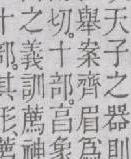 天子之器則
舉案齊眉爲
切。十部。亯象
之義訓薦神
十部。其形、薦